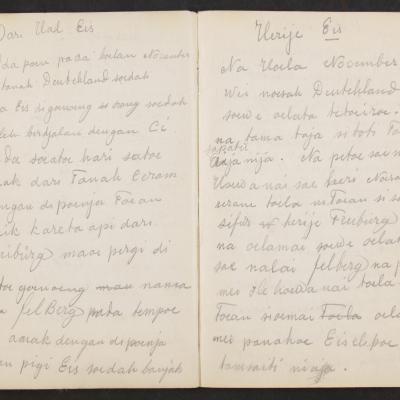 Dari Hal Eis
da poen pada boelan November
tanah Deutchland soedah
a Eis si goenoeng si orang soedah
leh birdjalan dengan Ci
da soeatoe hari satoe
nak dari Tanah Ceram
ngan di poenja Toean
ik kareta api dari
eibürg maoe pergi di
toe goenoeng mau nama
a felBerg pada tempoe
anak dengan di poenja
an pigi Eis soedah banjak
Herije Eis
Na Hoela November
Wei noesah Deutchland
soewe oelata tetoeroe.
na tama taja si toti
sapatu
Anja nija. Na petoe sae
Howa nai sae kseri
serane toela ni Toean si
sifur herije Freiburg
na oelamai soewe oelat
sae nalai felberg na
mei He howa nai toela
Toean sioemai Toela oela
mei panahoe Eis elepoe
tamsaiti niaja.